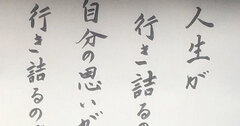 人生が
行き詰るの
自分の思いが
行き詰るの